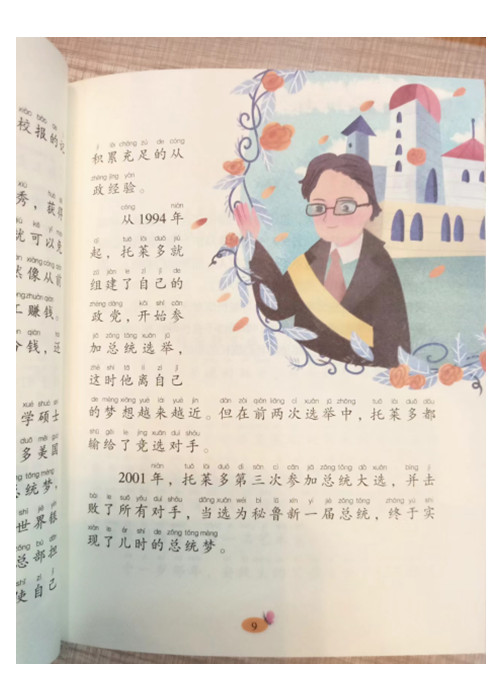 xiào bào de
校报的
xiù
秀，获得
就可以竞
xiàng cóng qián
然像从前
工赚钱。
qián
个钱，还
xué shuò shì
学硕士
duō měi guó
多美国
zǒng tǒng mèng
总统梦，
shì jiè
世界银
zǒng bù dān
总部担
shǐ zì jǐ
使自己
jī lěi chōng zú de cóng
积累充足的从
zhèng jīng yàn
政经验。
cóng nián
从1994年
qǐ tuō lái duō jiù
起，托莱多就
zǔ jiàn le zì jǐ de
组建了自己的
zhèng dǎng kāi shǐ cān
政党，开始参
jiā zǒng tǒng xuǎn jǔ
加总统选举，
zhè shí tā lí zì jǐ
这时他离自己
de mèng xiǎng yuè lái yuè jìn dàn zài qián liǎng cì xuǎn jǔ zhōng tuō lái duō dōu
的梦想越来越近。但在前两次选举中，托莱多都
shū gěi le jìng xuǎn duì shǒu
输给了竞选对手。
nián tuō lái duō dì sān cì cān jiā zǒng tǒng dà xuǎn bìng jī
2001年，托莱多第三次参加总统大选，并击
bài le suǒ yǒu duì shǒu dāng xuǎn wéi bì lǔ xīn yí jiè zǒng tǒng zhōng yú shí
败了所有对手，当选为秘鲁新一届总统，终于实
xiàn le ér shí de zǒng tǒng mèng
现了儿时的总统梦。
9